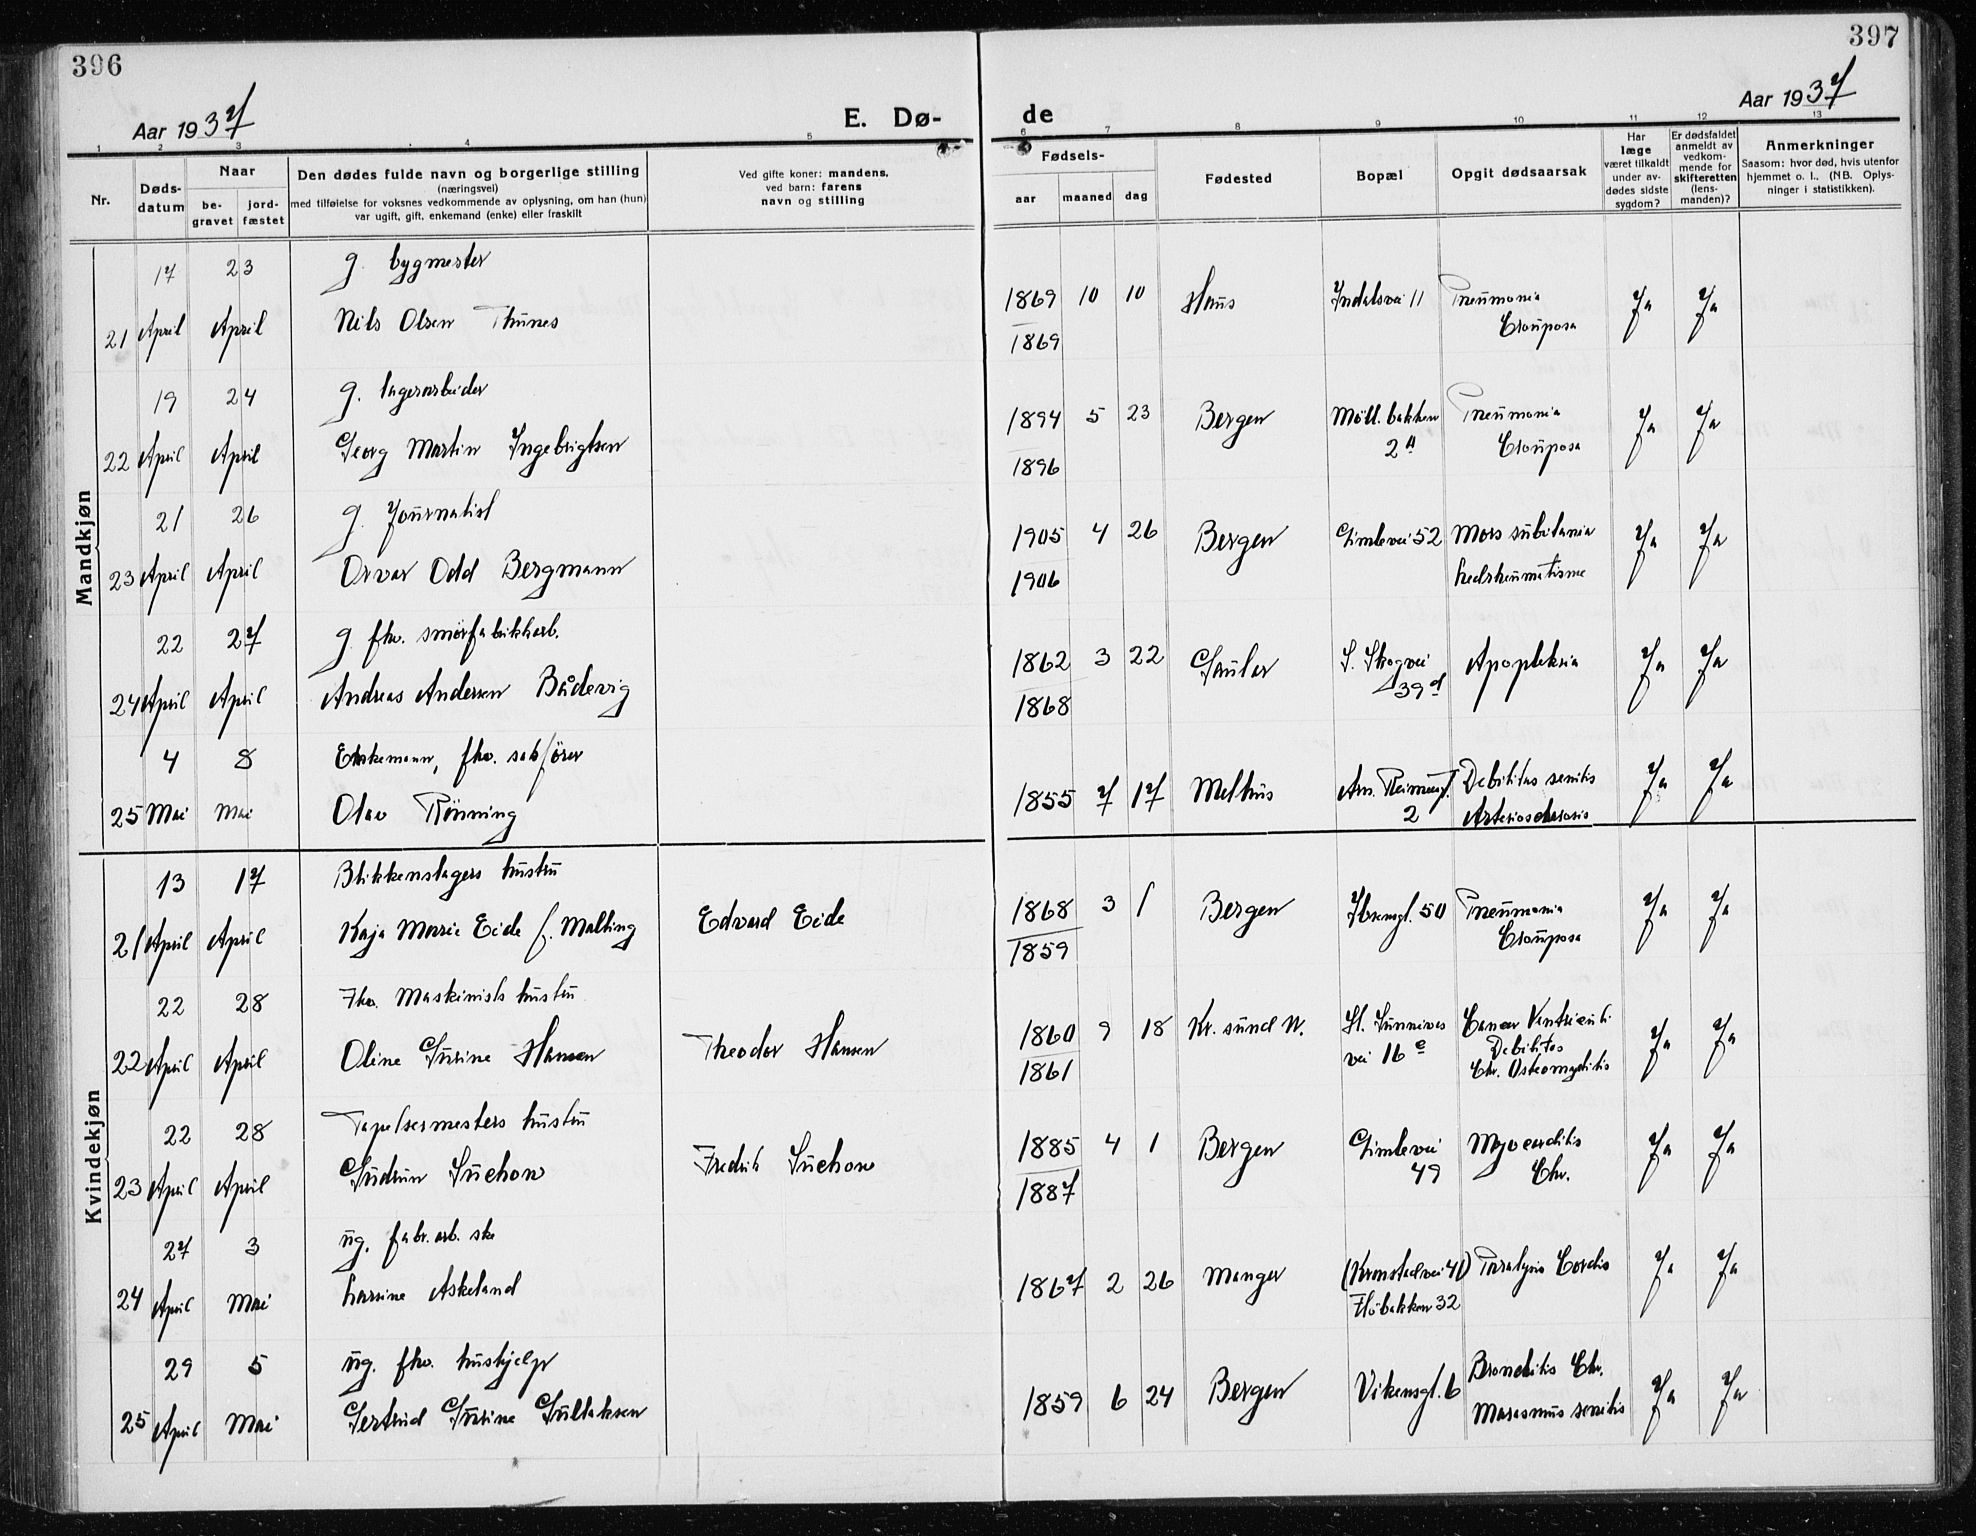 396
397
Aar 1937
E. Dø-
de
Aar 1937
1 2 3 4 5 6 7 8 9 10 11 12 13
Nr.
Døds-
datum
Naar
be-
gravet
jord-
fæstet
Den dødes fulde navn og borgerlige stilling
(næringsvei)
med tilføielse for voksnes vedkommende av oplysning, om han (hun)
var ugift, gift, enkemand (enke) eller fraskilt
Ved gifte koner: mandens,
ved barn: farens
navn og stilling
Fødsels-
aar
maaned
dag
Fødested
Bopæl
Opgit dødsaarsak
Har
læge
været tilkaldt
under av-
dødes sidste
sygdom?
Er dødsfaldet
anmeldt av
vedkom-
mende for
skifteretten
(lens-
manden)?
Anmerkninger
Saasom: hvor død, hvis utenfor
hjemmet o. l., (NB. Oplys-
ninger i statistikken).
Mandkjøn
17 23 g. bygmester
21 April April Nils Olsen Thunes 1869 10 10 Haus Indalsvei 11 Pneumonia Ja Ja
1869 Crouposa
19 24 g. lagerarbeider
22 April April Georg Martin Ingebrigtsen 1894 5 23 Bergen Möll.bakken Pneumonia Ja Ja
1896 2a Crouposa
21 26 g. Journalist
23 April April Orvar Odd Bergmann 1905 4 26 Bergen Gimlevei 52 Mors subitania Ja Ja
1906 Ledrheumatisme
22 27 g. fhv. smörfabrikkarb.
24 April April Andreas Andersen Bådevig 1862 3 22 Gaular S. Skogvei Apopleksia Ja Ja
1868 39d
4 8 Enkemann, fhv. sakfører
25 Mai Mai Olav Rönning 1855 7 17 Melhus Am. Reimersgt. Debilitas senilis Ja Ja
2 Arteriosclerosis
Kvindekjøn
13 17 Blikkenslagers hustru
21 April April Kaja Marie Eide f. Malting Edvard Eide 1868 3 1 Bergen Ibsensgt. 50 Pneumonia Ja Ja
1859 Crouposa
22 28 Fhv. Maskinists hustru
22 April April Oline Gurine Hansen Theodor Hansen 1860 9 18 Kr. sund N. St. Sunnives Cancer Ventriculi Ja Ja
1861 vei 16e Debilitas
Chr. Osteomyelitis
22 28 Tapetsermesters hustru
23 April April Gudrun Suchow Fredrik Suchow 1885 4 1 Bergen Gimlevei Myocarditis Ja Ja
1887 49 Chr.
27 3 ug. fabr.arb.ske
24 April Mai Larsine Askeland 1867 2 26 Manger (Kronstadvei 41) Paralysis Cordis Ja Ja
Flöbakken 32
29 5 ug. fhv. hushjelp
25 April Mai Gertrud Gurine Gullaksen 1859 6 24 Bergen Vikensgt. 6 Bronchitis Chr. Ja Ja
Marasmus senilis